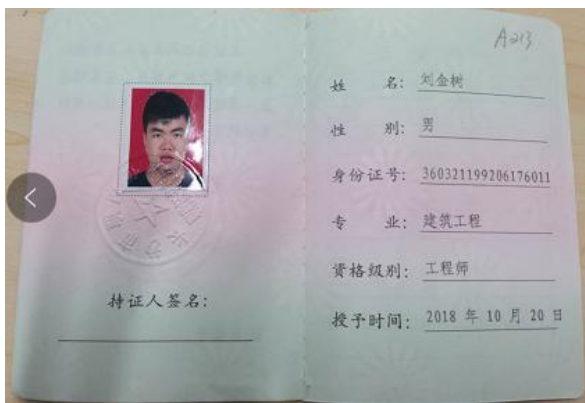 A213
姓 名: 刘金树
性 别: 男
身份证号: 360321199206176011
专 业: 建筑工程
资格级别: 工程师
授予时间: 2018 年 10 月 20 日
持证人签名: